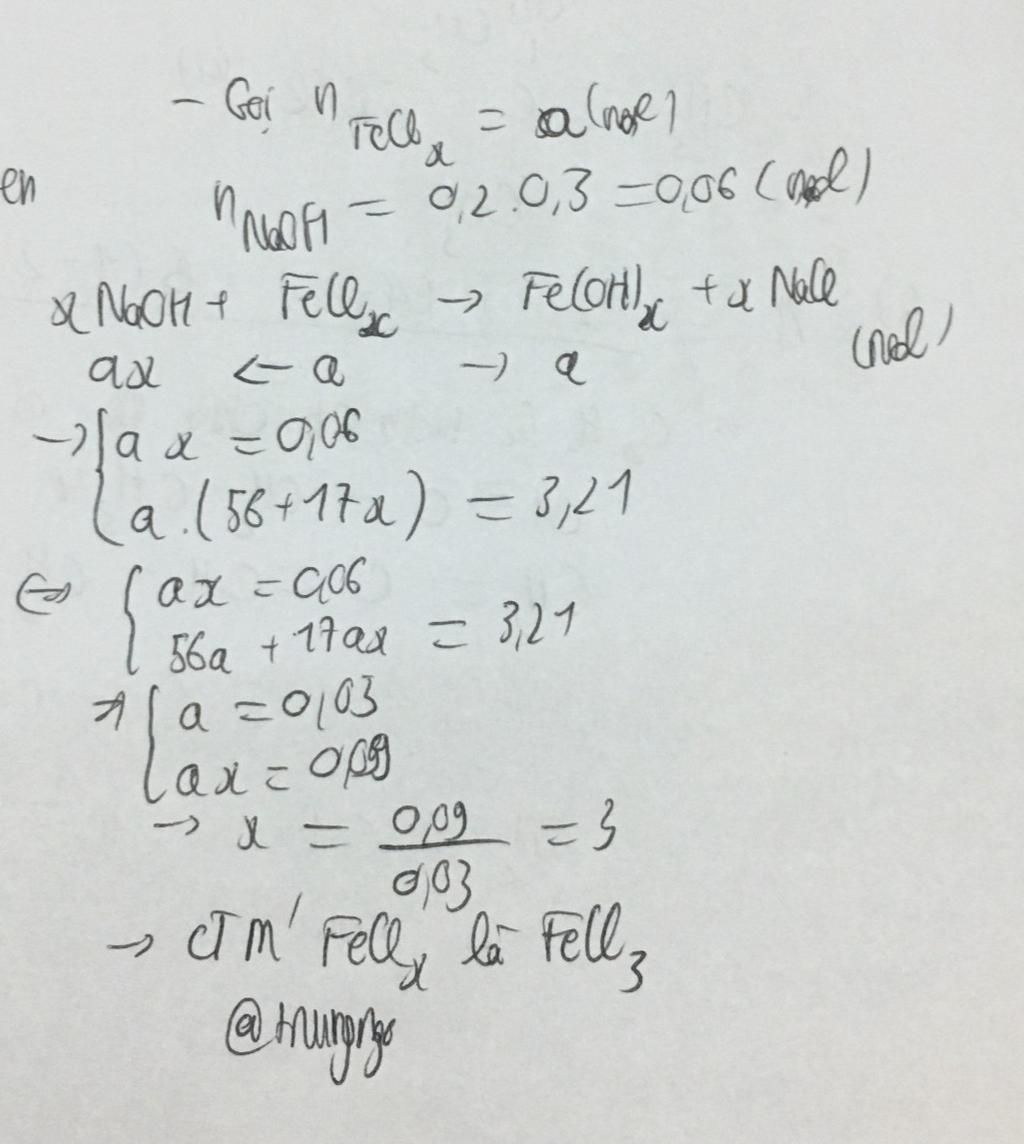 - Gọi n FeClx = a (mol)
en
nNaOH = 0,2.0,3 = 0,06 (mol)
xNaOH + FeClx → Fe(OH)x + x NaCl
ax ← a → a (mol)
→ { a x = 0,06
a.(56+17x) = 3,21
⇔ { ax = 0,06
56a + 17ax = 3,21
→ { a = 0,03
ax = 0,09
→ x = 0,09 / 0,03 = 3
→ CTM' FeClx là FeCl3